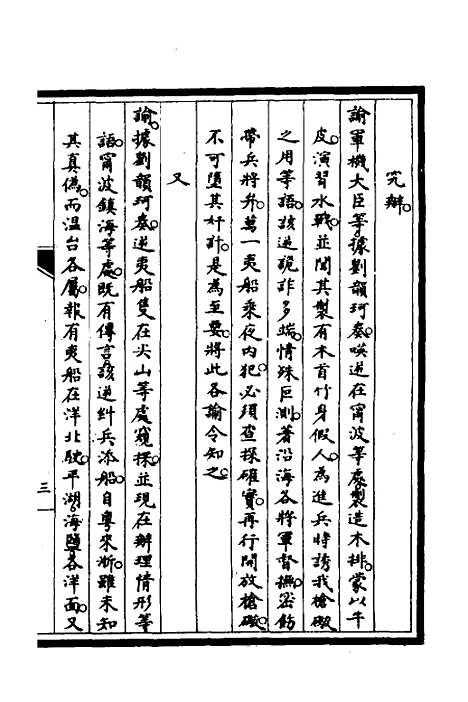 究辦。
諭軍機大臣等。據劉韻珂奏。㖞逆在甯波等處。製造木排。蒙以牛
皮。演習水戰。並聞其製有木首竹身假人。為進兵時誘我槍礮
之用等語。該逆詭詐多端。情殊叵測。著沿海各將軍督撫。密飭
帶兵將弁。萬一夷船乘夜內犯。必須查探確實。再行開放槍礮。
不可墮其奸計。是為至要。將此各諭令知之。
又
諭。據劉韻珂奏。逆夷船隻在尖山等處窺探。並現在辦理情形等
語。甯波鎮海等處。既有傳言。該逆糾兵添船。自粵來浙。雖未知
其真偽。而溫台各屬。報有夷船在洋北駛。平湖。海鹽各洋面。又
三